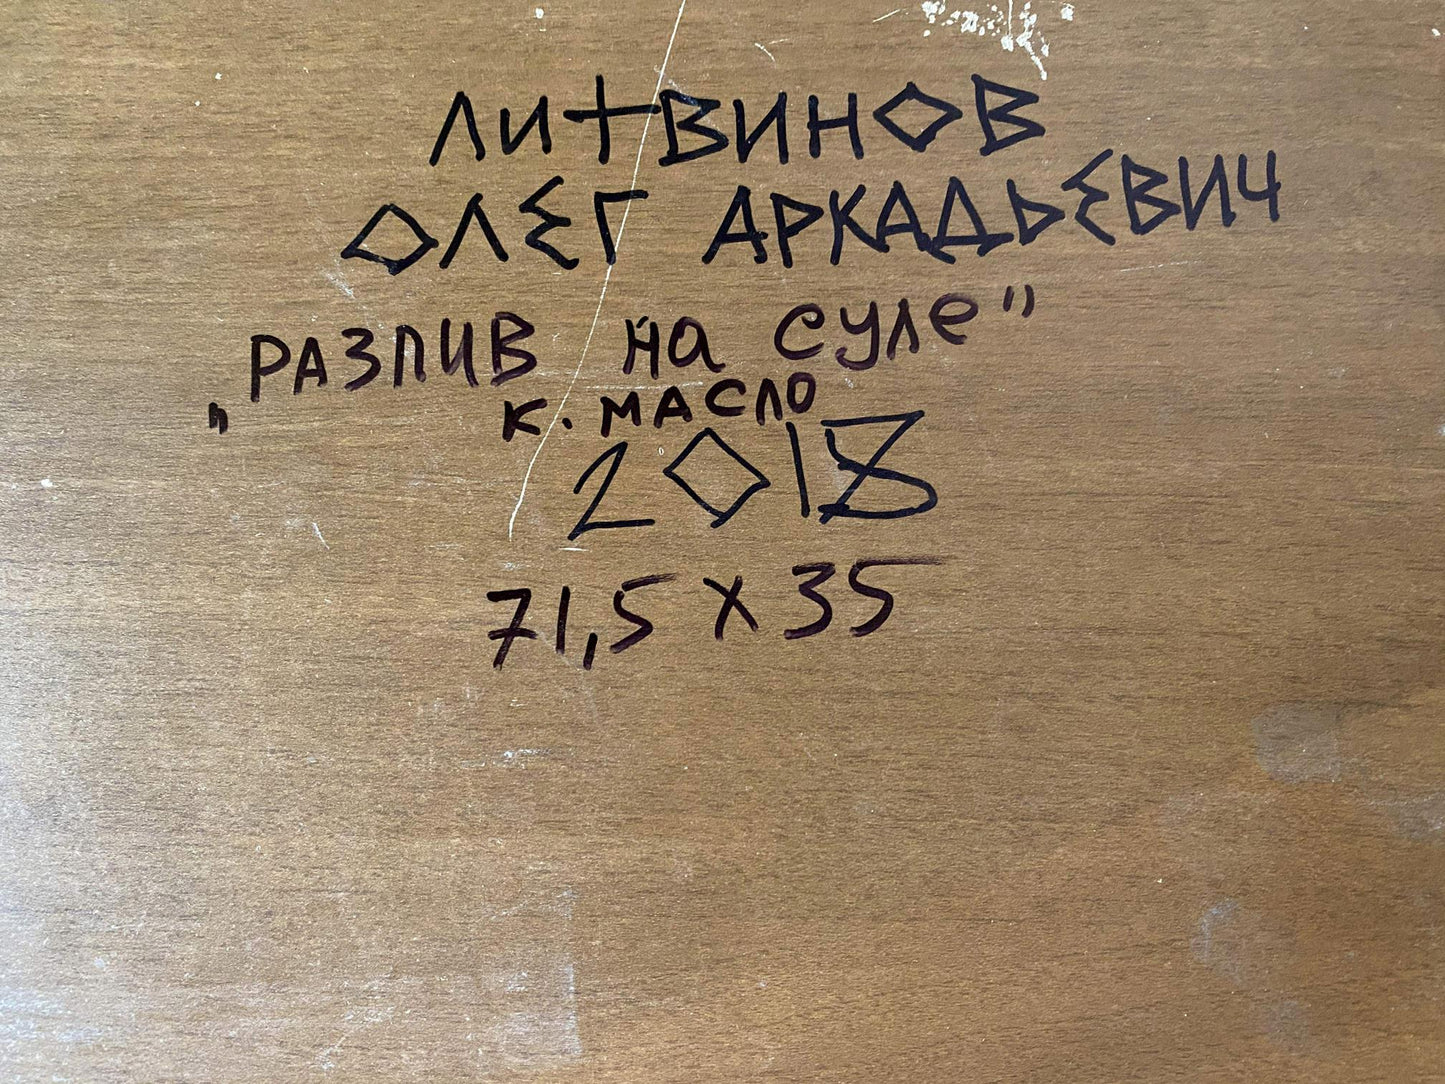 ЛИТВИНОВ
ОЛЕГ АРКАДЬЕВИЧ
„РАЗЛИВ на суле"
к. масло
2018
71,5 x 35